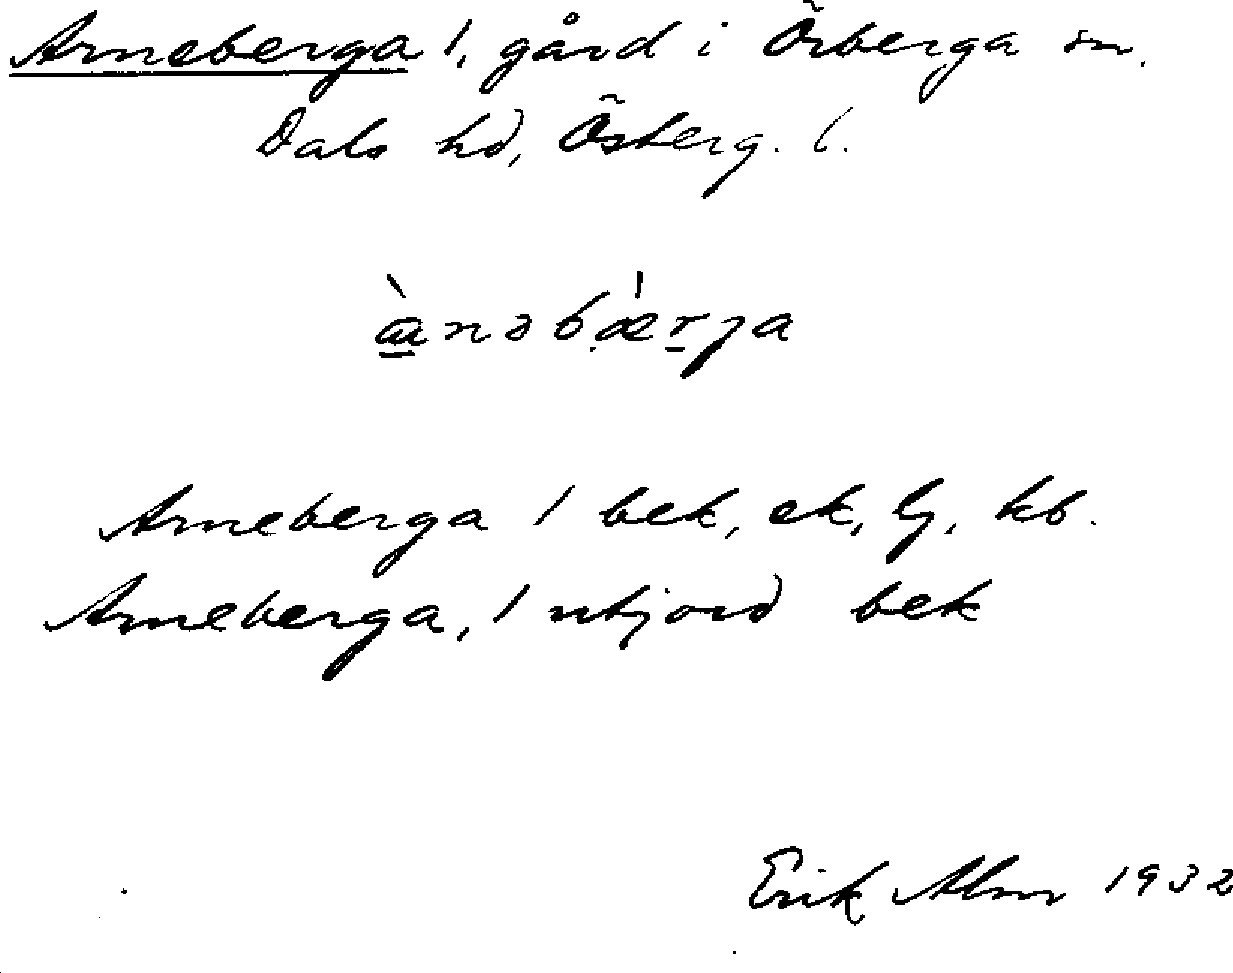 Arneberga 1, gård i Örberga sn.
Dals hd, Österg. l.
Arneberga 1 bek, ek, lj, kb.
Arneberga, 1 utjord bek
Erik Alm 1932